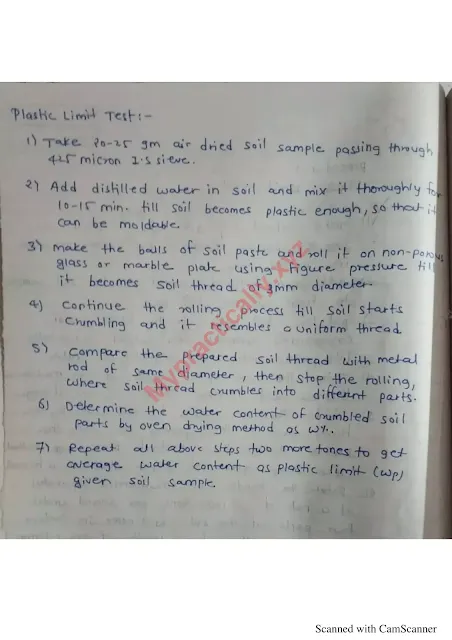 Plastic Limit Test:-
1) Take 20-25 gm air dried soil sample passing through
425 micron I.S sieve.
2) Add distilled water in soil and mix it thoroughly for
10-15 min. till soil becomes plastic enough, so that it
can be moldable.
3) make the balls of soil paste and roll it on non-porous
glass or marble plate using figure pressure till
it becomes soil thread of 3mm diameter.
4) Continue the rolling process till soil starts
crumbling and it resembles a uniform thread
5) Compare the prepared soil thread with metal
rod of same diameter, then stop the rolling,
where soil thread crumbles into different parts.
6) Determine the water content of crumbled soil
parts by oven drying method as w%.
7) Repeat all above steps two more tones to get
average water content as plastic limit (wp)
given soil sample.
Mypractically.xyz
Scanned with CamScanner